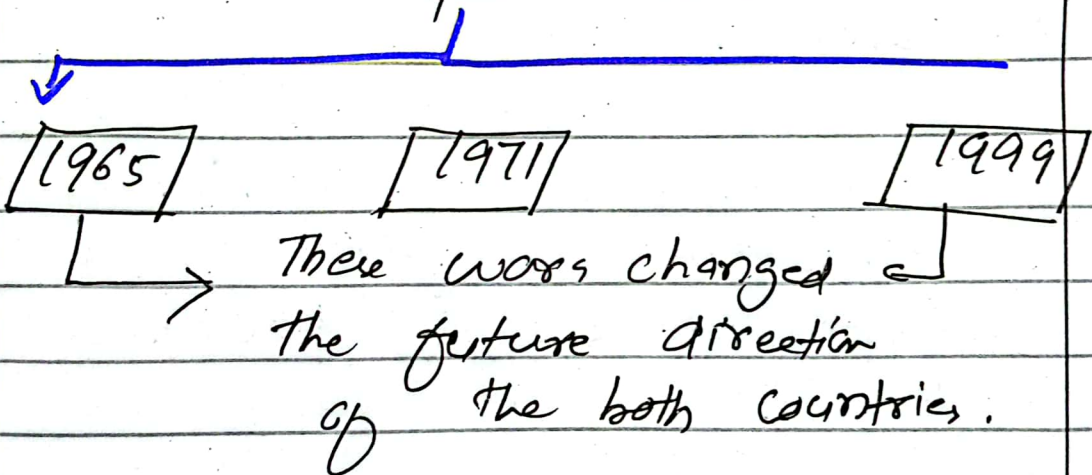 1965 1971 1999
These wars changed
the future direction
of the both countries.